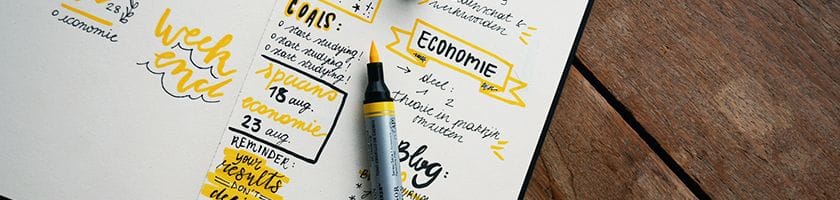 28 aug.
o economie
Week
end
GOALS:
o start studying!
o start studying!
o start studying!
spaans
18 aug.
economie
23 aug.
REMINDER:
your
results
DON'T
werkwoorden
ECONOMIE
→ deel:
1 2
theorie in praktijk
omzetten
Blog: